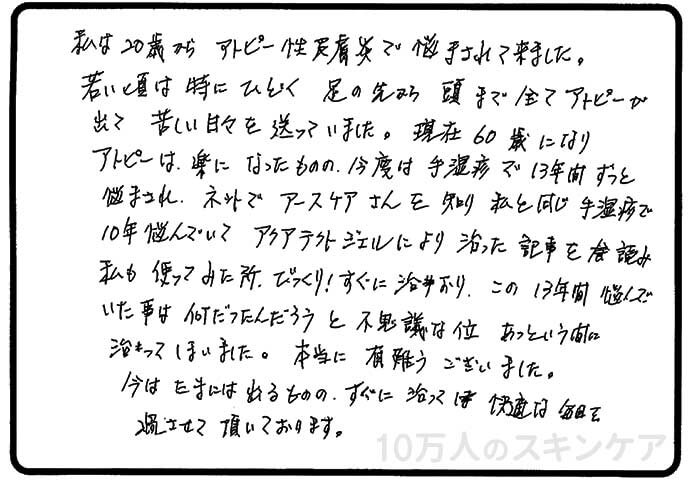 私は20歳からアトピー性皮膚炎で悩まされて来ました。
若い頃は特にひどく 足の先から 頭まで全てアトピーが
出て 苦しい日々を送っていました。現在60歳になり
アトピーは、楽になったものの、今度は手湿疹で13年間ずっと
悩まされ、ネットでアースケアさんを知り 私と同じ手湿疹で
10年悩んでいてアクアテクトジェルにより治った記事を 読み
私も使ってみた所、びっくり!すぐに治 おり、この13年間悩んで
いた事は何だったんだろうと不思議な位 あっという間に
治ってしまいました。本当に有難うございました。
今はたまには出るものの、すぐに治って 快適な毎日を
過させて頂いております。
10万人のスキンケア